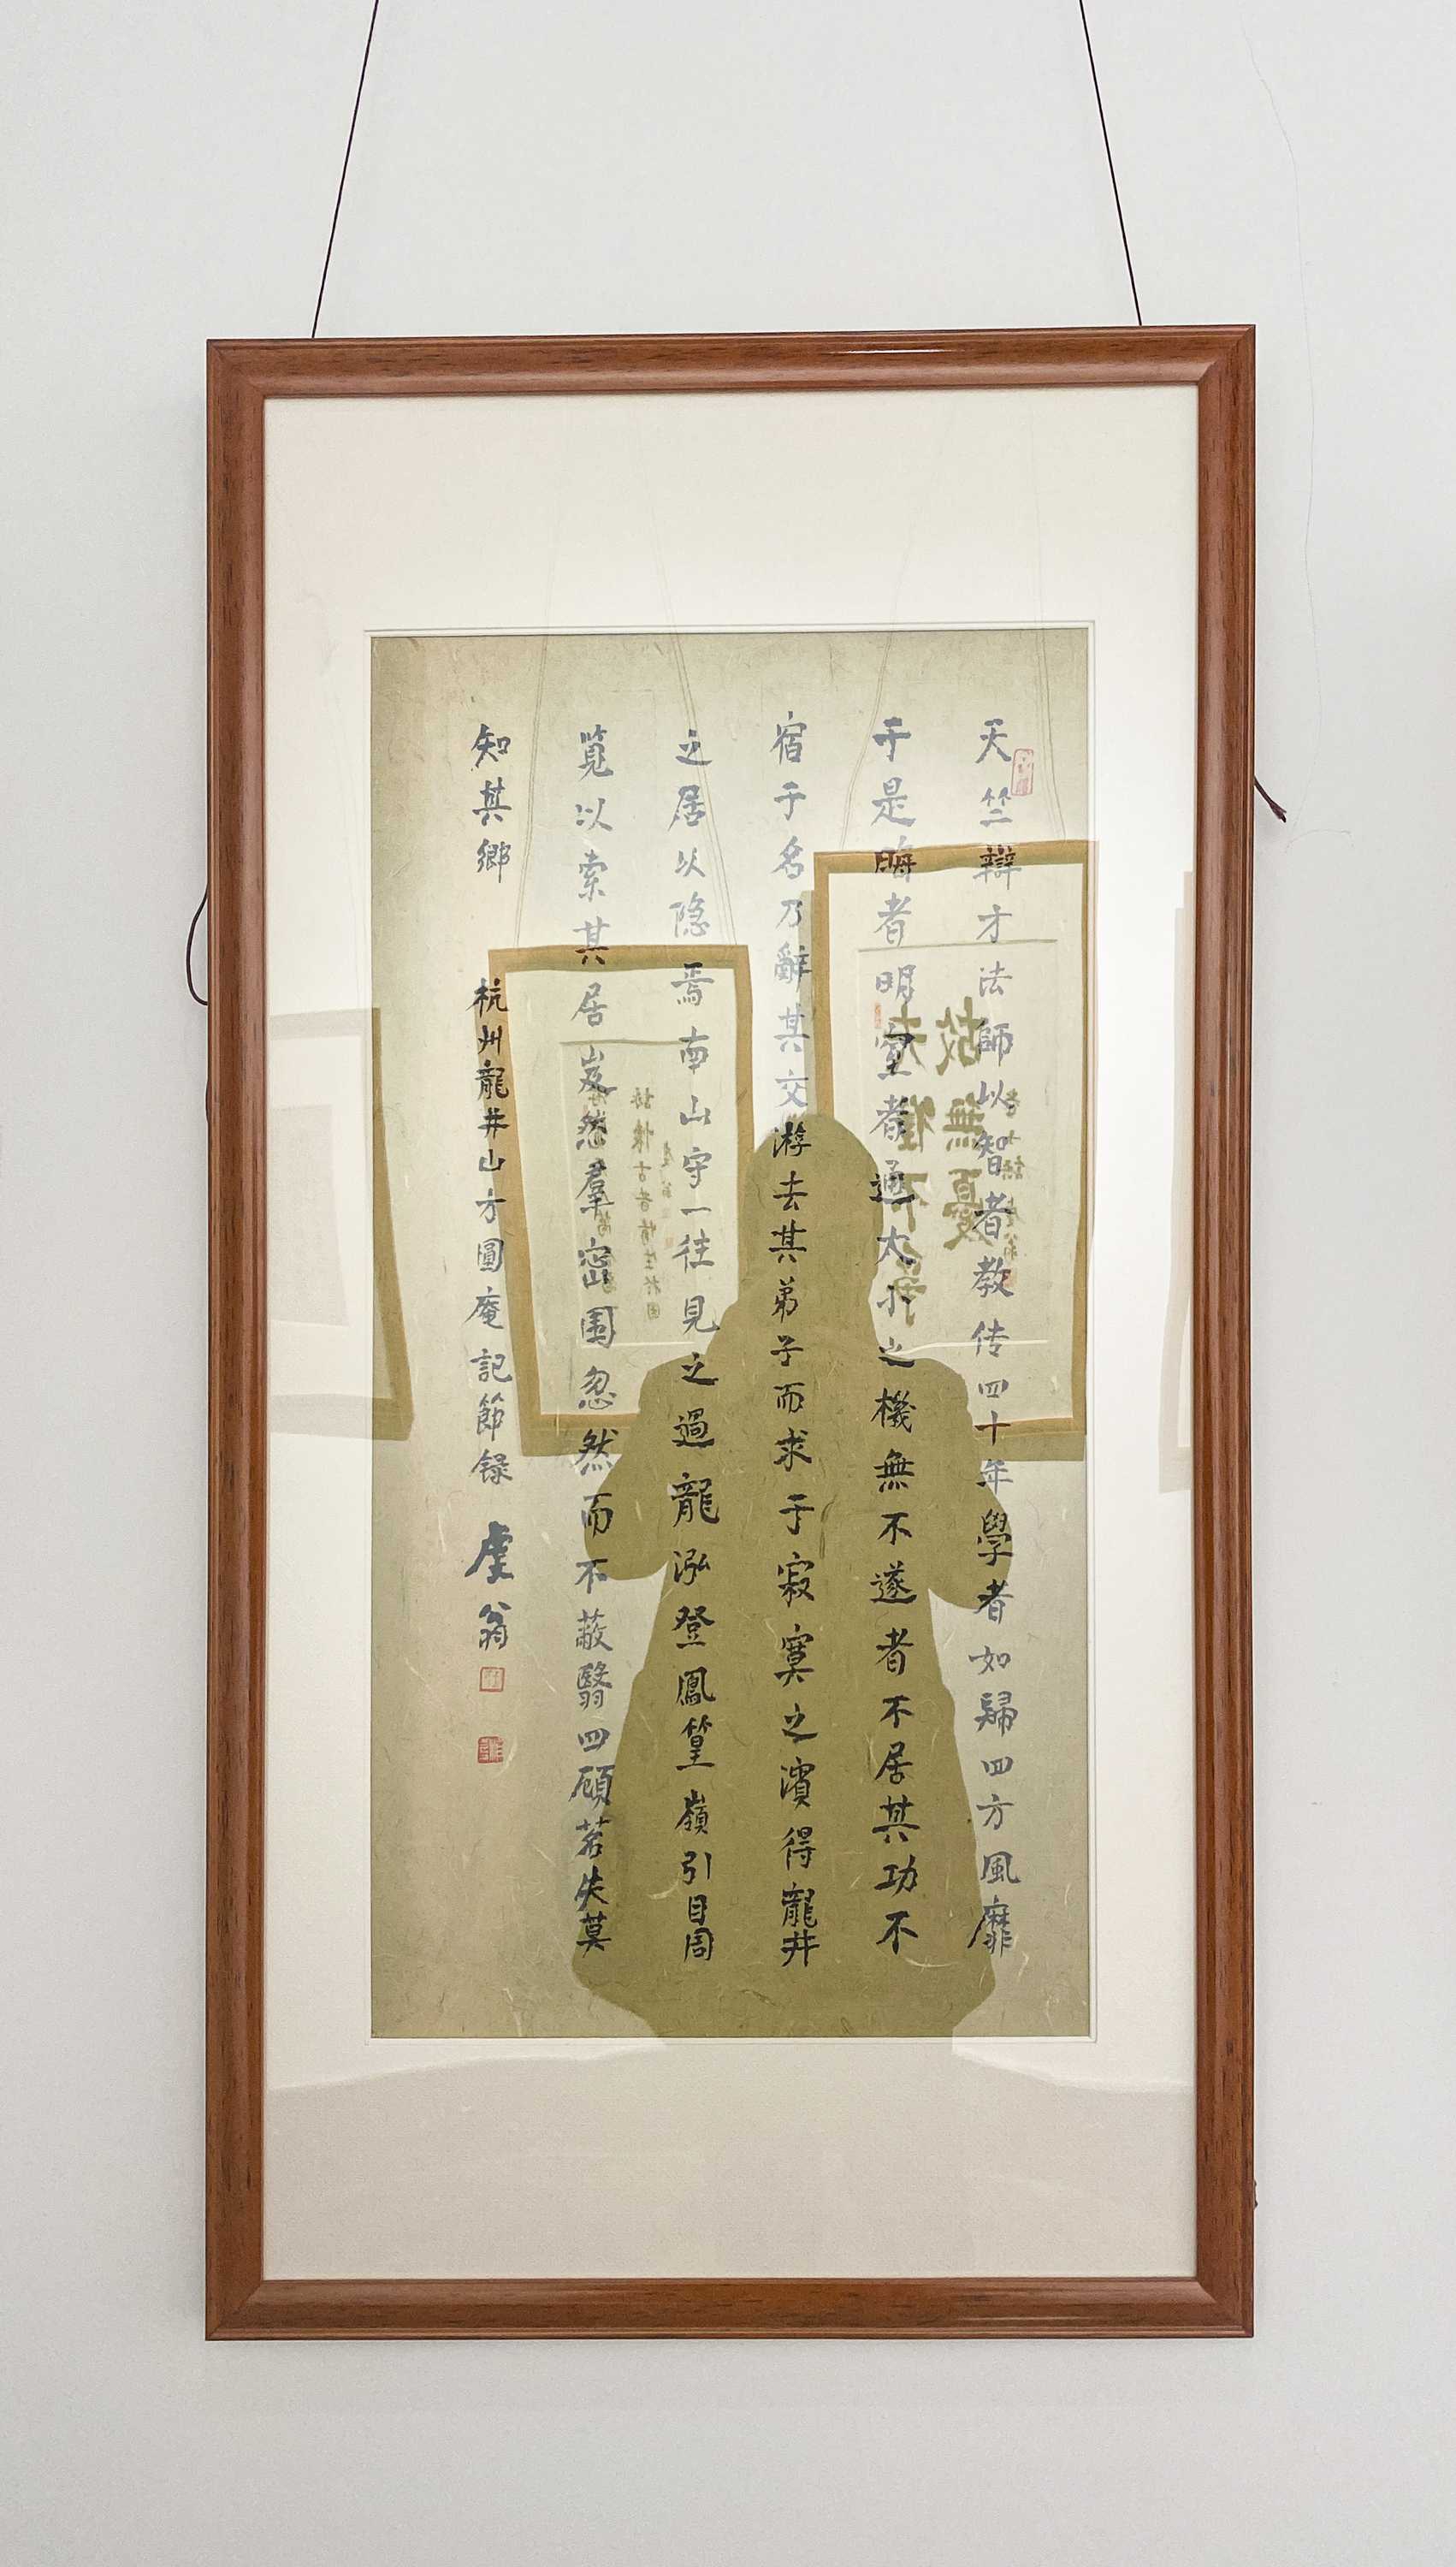 天竺辯才法師以智者教传四十年學者如歸四方風靡
于是晦者明窒者通大小之機無不遂者不居其功不
宿于名乃辭其交游去其弟子而求于寂寞之濱得龍井
之居以隐焉南山守一往見之過龍泓登鳳篁嶺引目周
覓以索其居岌然羣密围忽然而不蔽翳四顾若失莫
知其鄉 杭州龍井山方圓庵記節録 虔翁